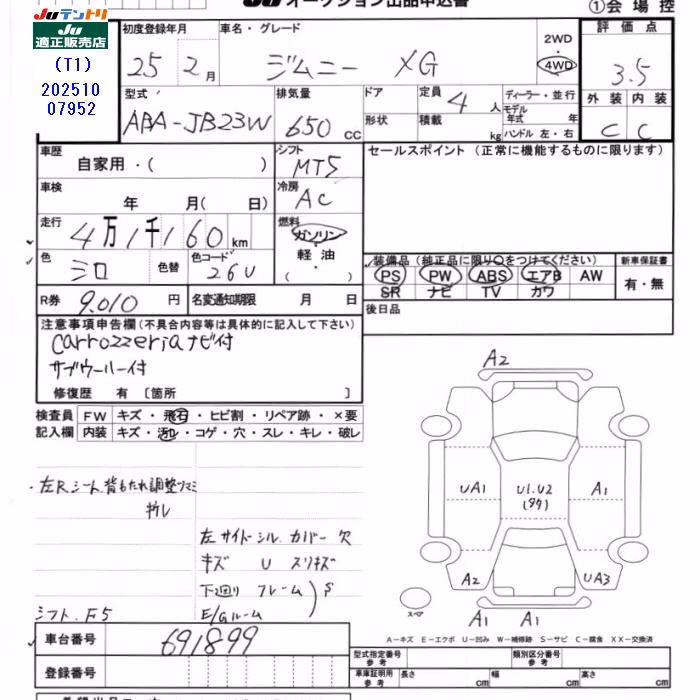 JU オークション出品申込書
①会場控
JUテントリ
JU
適正販売店
(T1)
202510
07952
初度登録年月
車名・グレード
評価点
25 2月
ジムニー XG
2WD
・
4WD
3.5
型式
排気量
ドア
定員 4 人
ディーラー・並行
外装 内装
ABA-JB23W
650 cc
形状
積載 kg
モデル年式 年
ハンドル 左・右
C C
車歴
自家用・( )
シフト
MT5
セールスポイント(正常に機能するものに限ります)
車検
年 月( 日)
冷房
AC
走行
4万1千160km
燃料
ガソリン
・
軽油
・
( )
色
シロ
色替
色コード
26U
装備品(純正品に限り○をつけてください)
新車保証書
PS PW ABS エアB AW
SR ナビ TV カワ
有・無
R券 9,010 円
名変通知期限 月 日
後日品
注意事項申告欄(不具合内容等は具体的に記入して下さい)
carrozzeriaナビ付
サブウーハー付
修復歴 有〔箇所 〕
検査員 FW キズ・飛石・ヒビ割・リペア跡・×要
記入欄 内装 キズ・汚れ・コゲ・穴・スレ・キレ・破レ
・左Rシート背もたれ調整ツマミ
折レ
左サイドシルカバー欠
キズ U スリキズ
下廻り フレーム
E/Gルーム
S
シフト.F5
A2
UA1
U1.U2
A1
A2
UA3
スペア
A1
A1
A-キズ E-エクボ U-凹み W-補修跡 S-サビ C-腐食 XX-交換済
車台番号
691899
登録番号
型式指定番号
参考
類別区分番号
参考
車庫証明用
参考
長さ cm
幅 cm
高さ cm